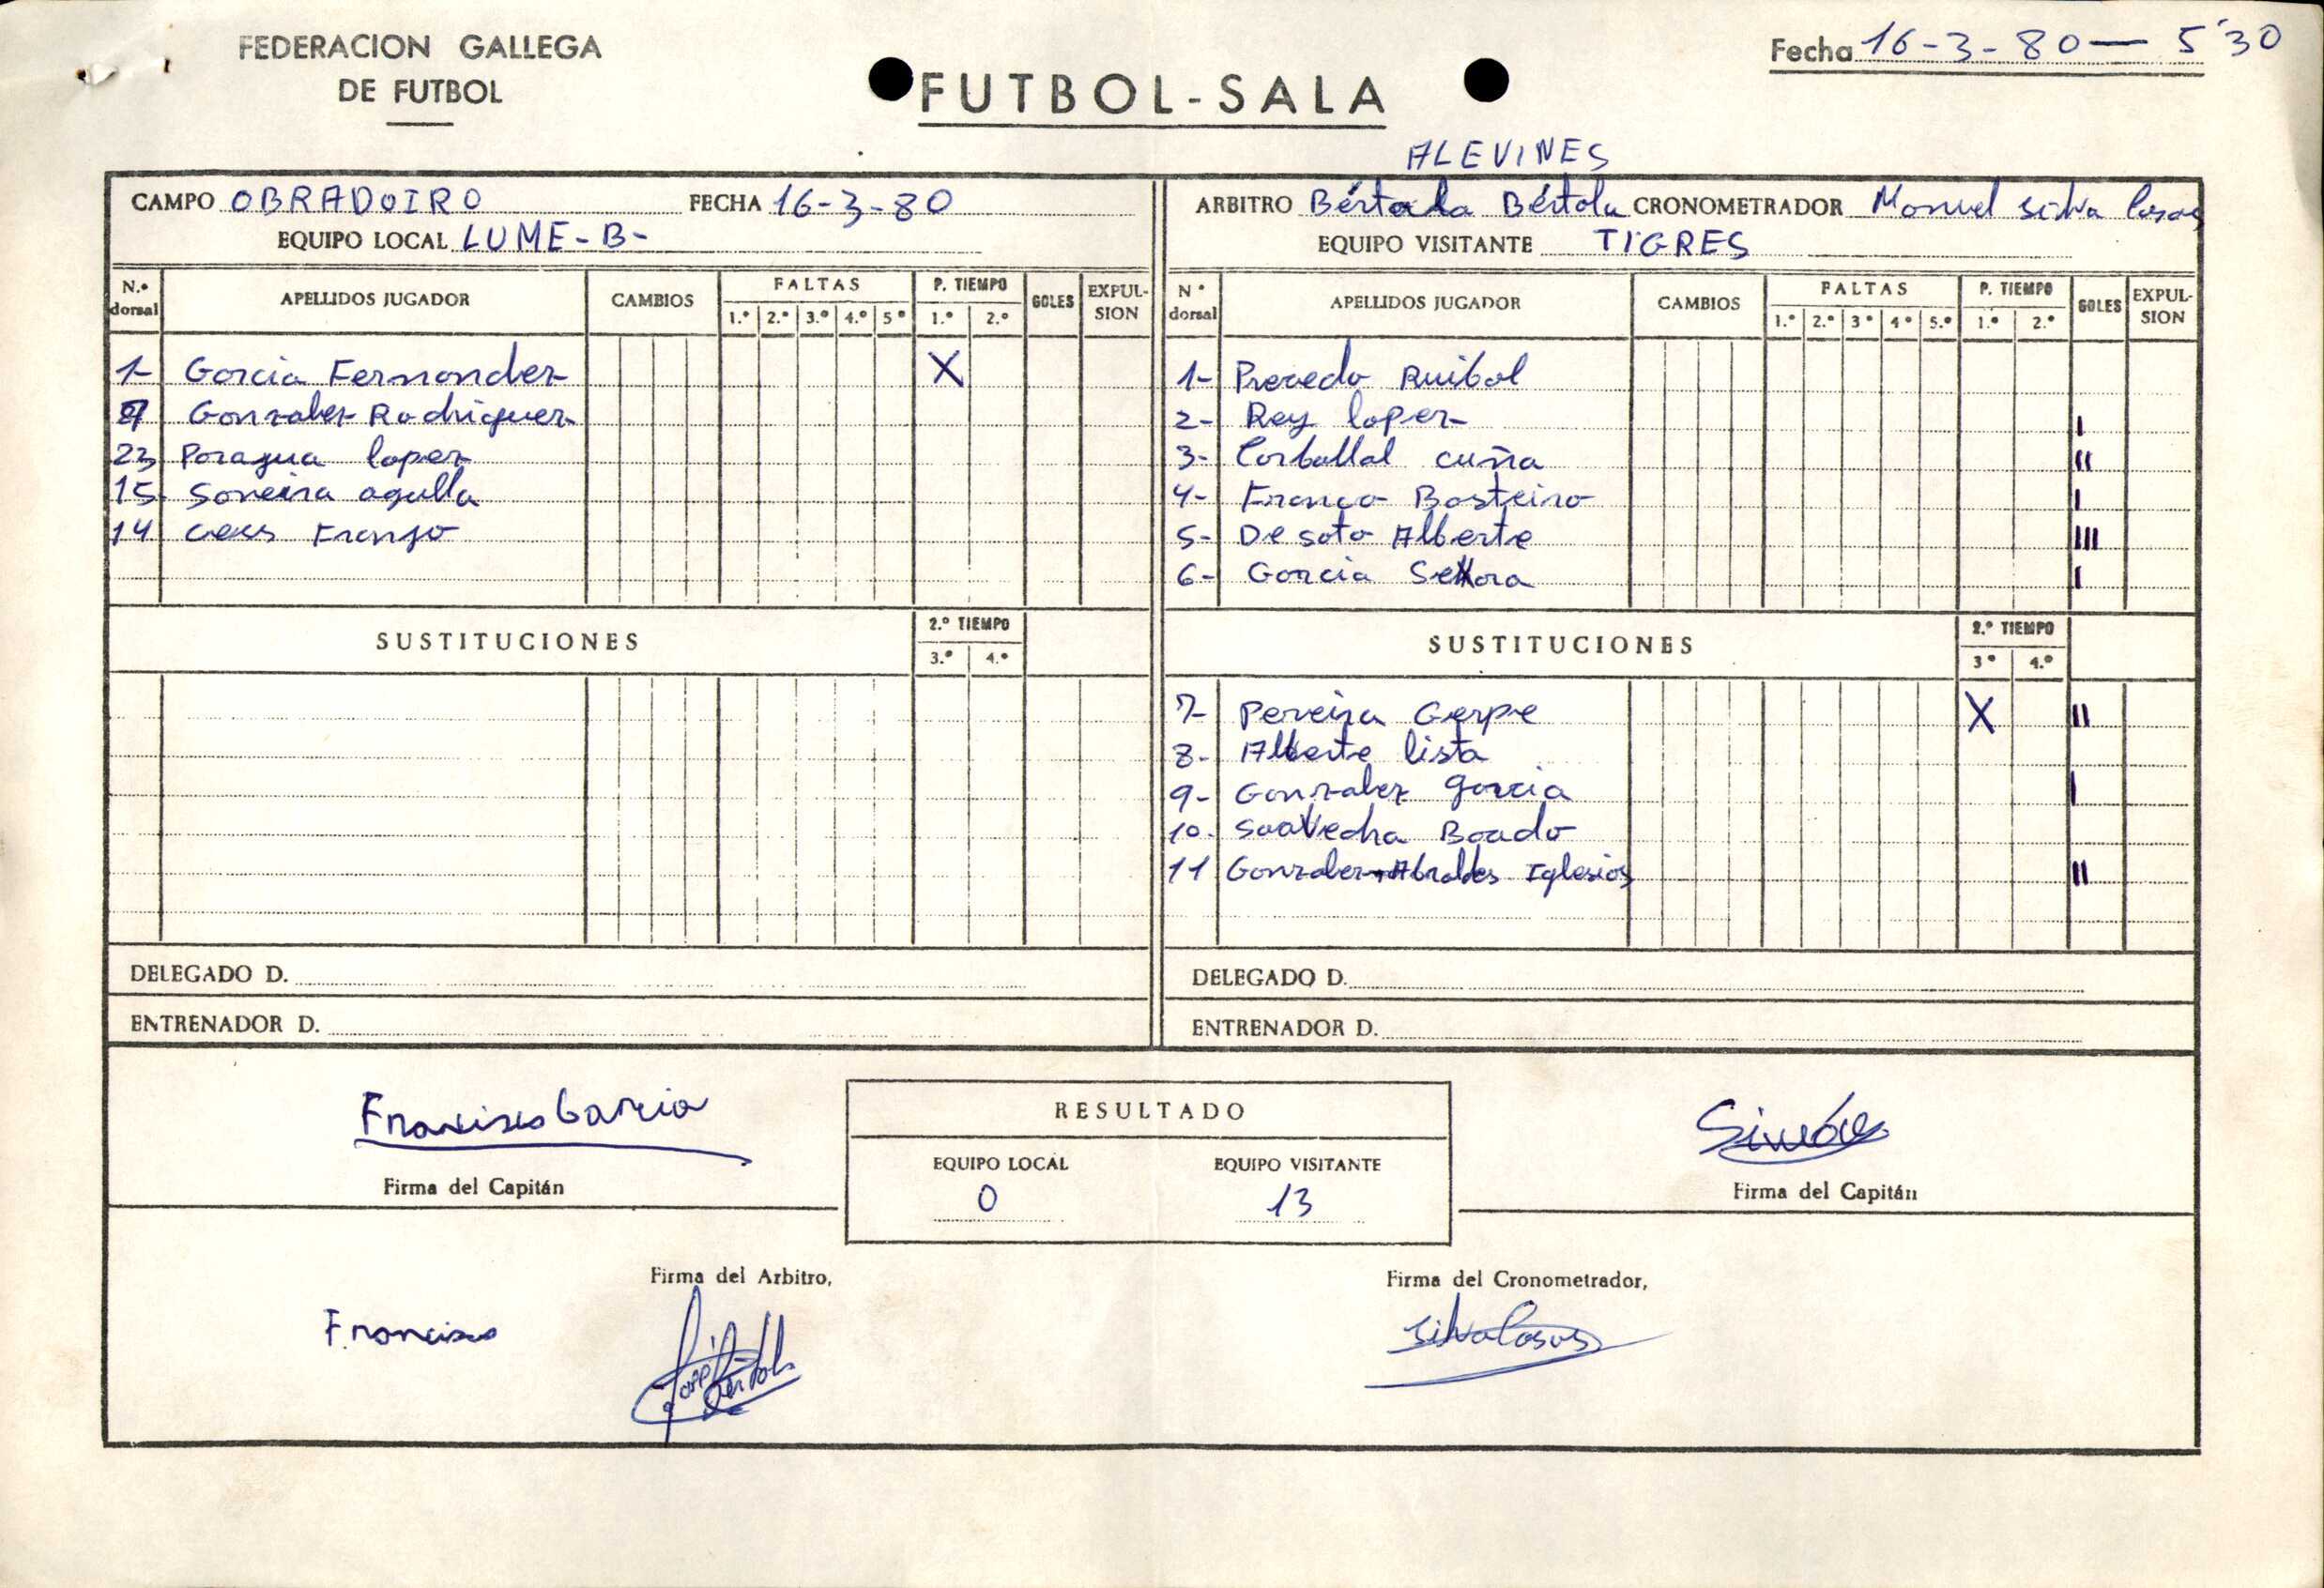 FEDERACION GALLEGA
DE FUTBOL
FUTBOL-SALA
Fecha 16-3-80 — 5'30
ALEVINES
CAMPO OBRADOIRO FECHA 16-3-80
EQUIPO LOCAL LUME-B-
N.º dorsal APELLIDOS JUGADOR CAMBIOS FALTAS 1.º 2.º 3.º 4.º 5º P. TIEMPO 1.º 2.º GOLES EXPULSION
1- Garcia Fernandez X
Gonzalez Rodriguez
23 Paragua lopez
15 Soneira agulla
14 Franjo
SUSTITUCIONES 2.º TIEMPO 3.º 4.º
DELEGADO D.
ENTRENADOR D.
ARBITRO Bértola CRONOMETRADOR Manuel Silva Casas
EQUIPO VISITANTE TIGRES
Nº dorsal APELLIDOS JUGADOR CAMBIOS FALTAS 1.º 2.º 3º 4º 5.º P. TIEMPO 1.º 2.º GOLES EXPULSION
1- Ruibal
2- Rey lopez I
3- Carballal cuña II
4- Franco Basteiro I
5- De soto Alberte III
6- Garcia I
SUSTITUCIONES 2.º TIEMPO 3º 4.º
7- Pereira Gerpe X II
8- Alberte lista
9- Gonzalez garcia I
10- Saavedra Boado
11 Gonzalez Abraldes Iglesias II
DELEGADO D.
ENTRENADOR D.
Francisco Garcia
Firma del Capitán
RESULTADO
EQUIPO LOCAL EQUIPO VISITANTE
0 13
Firma del Capitán
Firma del Arbitro,
Francisco
José Bértola
Firma del Cronometrador,
Silva Casas